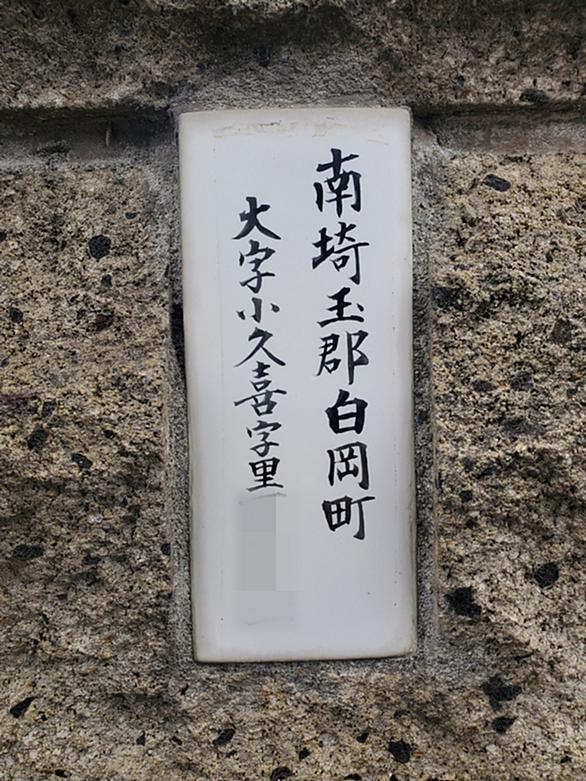 南埼玉郡白岡町
大字小久喜字里